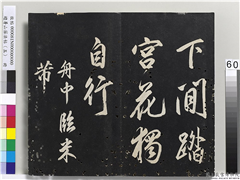 下閒踏
宮花獨
自行
舟中臨米
芾
60